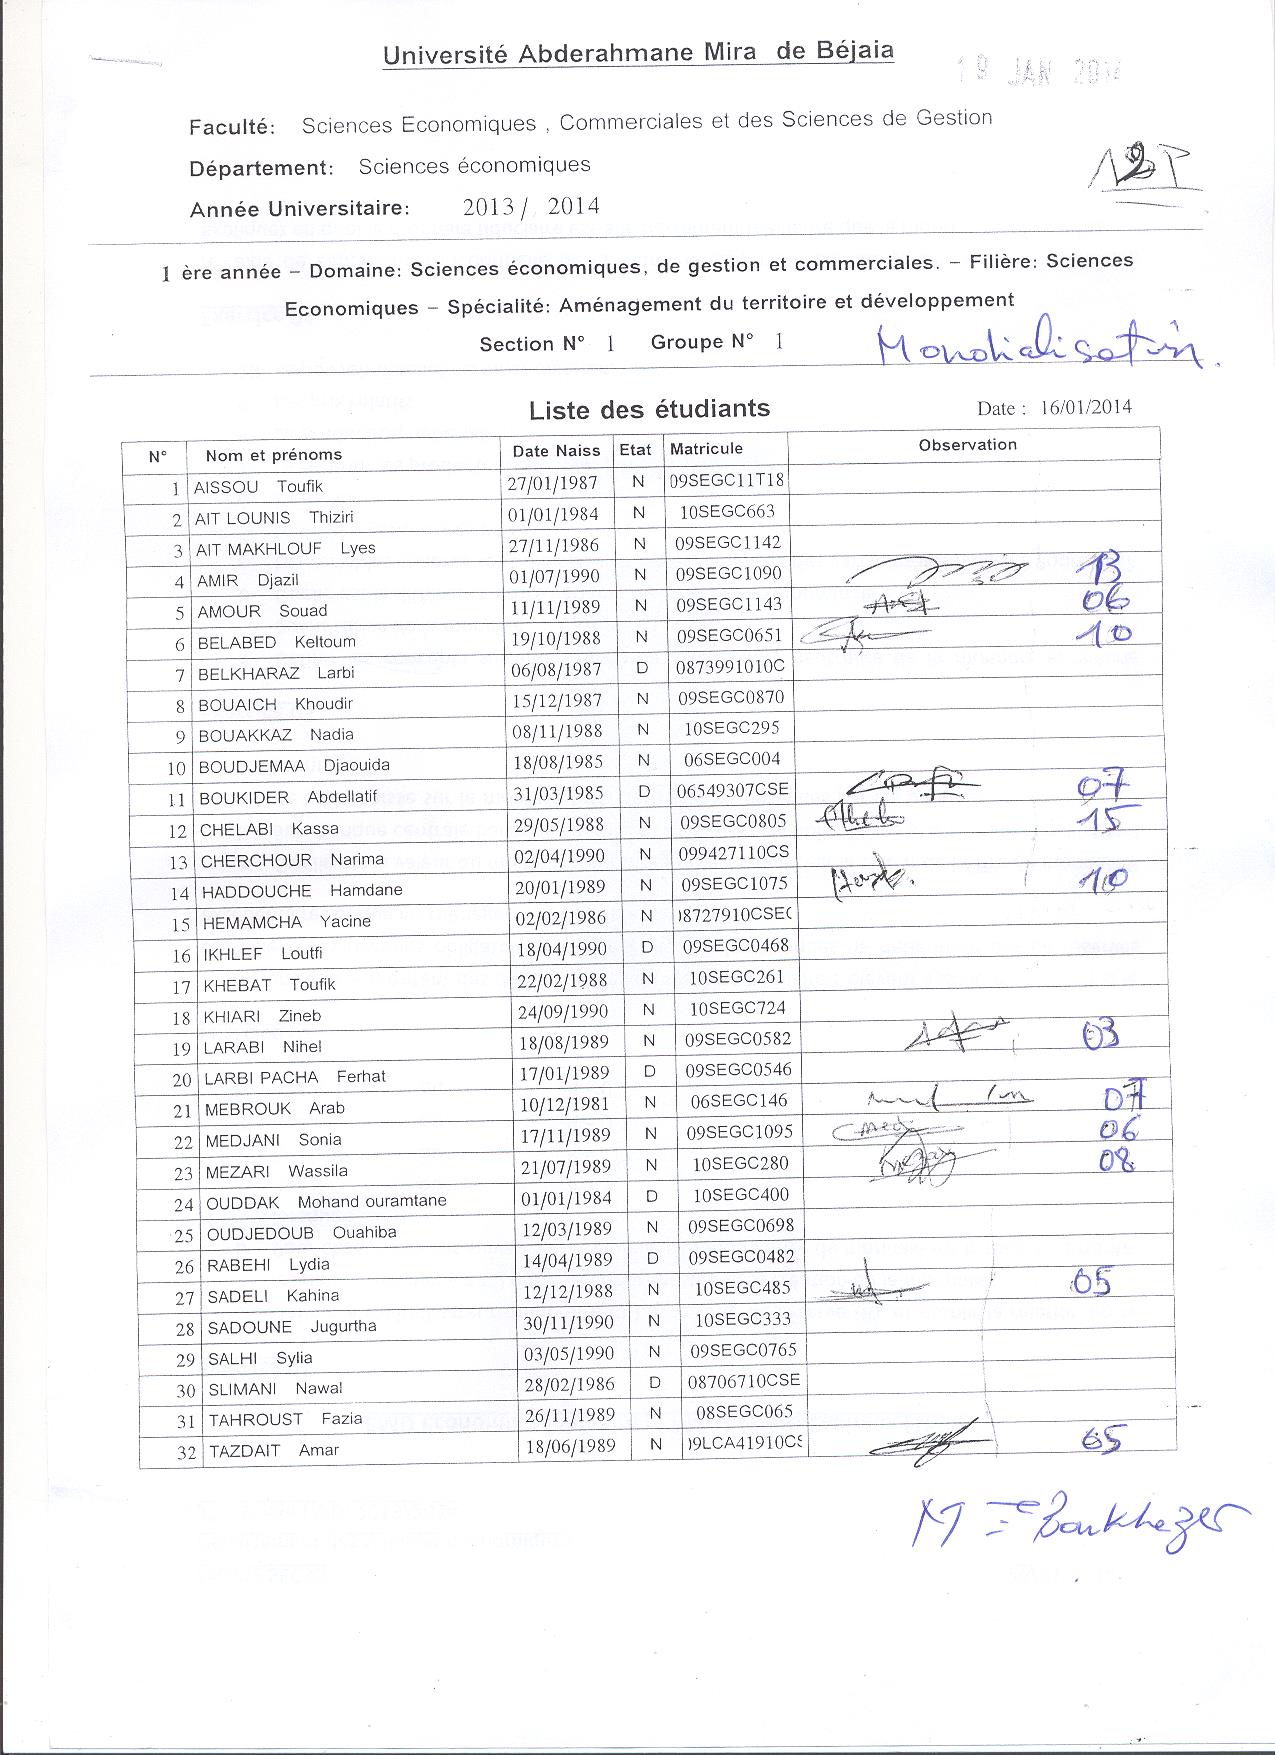 Université Abderahmane Mira de Béjaia
19 JAN 2014
Faculté: Sciences Economiques , Commerciales et des Sciences de Gestion
Département: Sciences économiques
Année Universitaire: 2013 / 2014
1 ère année – Domaine: Sciences économiques, de gestion et commerciales. – Filière: Sciences
Economiques – Spécialité: Aménagement du territoire et développement
Section N° 1 Groupe N° 1 Mondialisation.
Liste des étudiants Date : 16/01/2014
N° Nom et prénoms Date Naiss Etat Matricule Observation
1 AISSOU Toufik 27/01/1987 N 09SEGC11T18
2 AIT LOUNIS Thiziri 01/01/1984 N 10SEGC663
3 AIT MAKHLOUF Lyes 27/11/1986 N 09SEGC1142
4 AMIR Djazil 01/07/1990 N 09SEGC1090 13
5 AMOUR Souad 11/11/1989 N 09SEGC1143 06
6 BELABED Keltoum 19/10/1988 N 09SEGC0651 10
7 BELKHARAZ Larbi 06/08/1987 D 0873991010C
8 BOUAICH Khoudir 15/12/1987 N 09SEGC0870
9 BOUAKKAZ Nadia 08/11/1988 N 10SEGC295
10 BOUDJEMAA Djaouida 18/08/1985 N 06SEGC004
11 BOUKIDER Abdellatif 31/03/1985 D 06549307CSE 07
12 CHELABI Kassa 29/05/1988 N 09SEGC0805 15
13 CHERCHOUR Narima 02/04/1990 N 099427110CS
14 HADDOUCHE Hamdane 20/01/1989 N 09SEGC1075 10
15 HEMAMCHA Yacine 02/02/1986 N 08727910CSEC
16 IKHLEF Loutfi 18/04/1990 D 09SEGC0468
17 KHEBAT Toufik 22/02/1988 N 10SEGC261
18 KHIARI Zineb 24/09/1990 N 10SEGC724
19 LARABI Nihel 18/08/1989 N 09SEGC0582 03
20 LARBI PACHA Ferhat 17/01/1989 D 09SEGC0546
21 MEBROUK Arab 10/12/1981 N 06SEGC146 07
22 MEDJANI Sonia 17/11/1989 N 09SEGC1095 06
23 MEZARI Wassila 21/07/1989 N 10SEGC280 08
24 OUDDAK Mohand ouramtane 01/01/1984 D 10SEGC400
25 OUDJEDOUB Ouahiba 12/03/1989 N 09SEGC0698
26 RABEHI Lydia 14/04/1989 D 09SEGC0482
27 SADELI Kahina 12/12/1988 N 10SEGC485 05
28 SADOUNE Jugurtha 30/11/1990 N 10SEGC333
29 SALHI Sylia 03/05/1990 N 09SEGC0765
30 SLIMANI Nawal 28/02/1986 D 08706710CSE
31 TAHROUST Fazia 26/11/1989 N 08SEGC065
32 TAZDAIT Amar 18/06/1989 N 09LCA41910CS 05